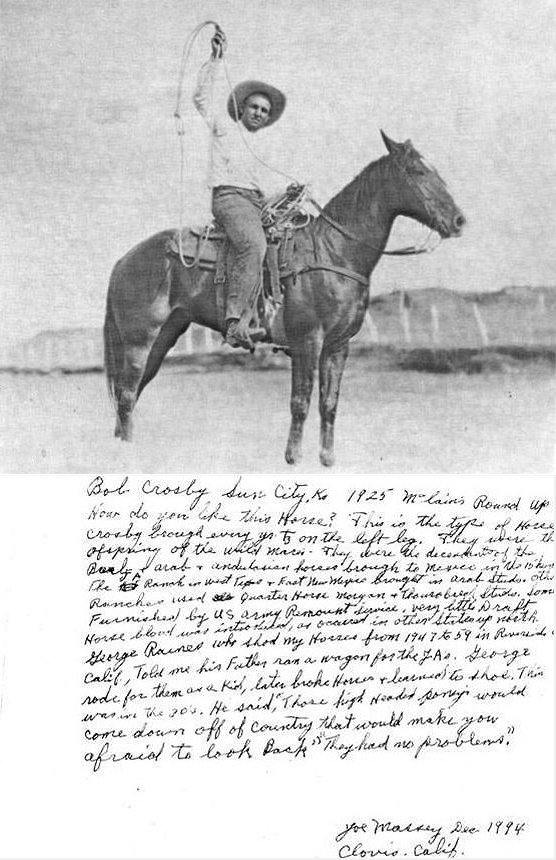 Bob Crosby Sun City, Ks 1925 McLains Round Up
How do you like this Horse? This is the type of Horse
Crosby brough every yr to on the left leg. They were th
ofspring of the wild mares. They were the decendent of the
Barb, + arab + andulusian horses brough to Mexico in the 15 hun
The Ranch in West Texas + East New Mexico brought in arab Studs. Othe
Ranches used Quarter Horse Morgan + Thourobred Studs. Some
Furnished by US army Remount Service. Very little Draft
Horse blood was introduced, as occured in other States up north.
George Raines who shod my Horses from 1947 to 59 in Riverside
Calif, Told me his Father ran a wagon for the JAs. George
rode for them as a Kid, later broke Horses + learned to shoe. This
was in the 20's. He said, "Those high Headed pony's would
come down off of Country that would make you
afraid to look Back" "They had no problems."
Joe Massey Dec 1994
Clovis. Calif.